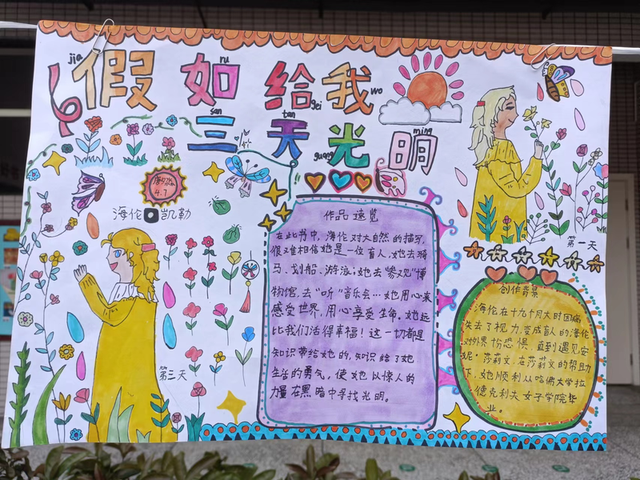 jiǎ rú gěi wǒ
假如给我
sān tiān guāng míng
三天光明
海伦·凯勒
第一天
第三天
作品速览
在此书中,海伦对大自然的描写,
很难相信她是一位盲人,她去骑
马、划船、游泳;她去"参观"博
物馆,去"听"音乐会…她用心来
感受世界,用心享受生命,她起
比我们活得幸福!这一切都是
知识带给她的,知识给了她
生活的勇气,使她以惊人的
力量在黑暗中寻找光明。
创作背景
海伦在十九个月大时因病
失去了视力,变成盲人的海伦
对外界
直到遇见安
妮·莎莉文,在莎莉文的帮助
下,她顺利从哈佛大学拉
德克利夫女子学院毕
业。